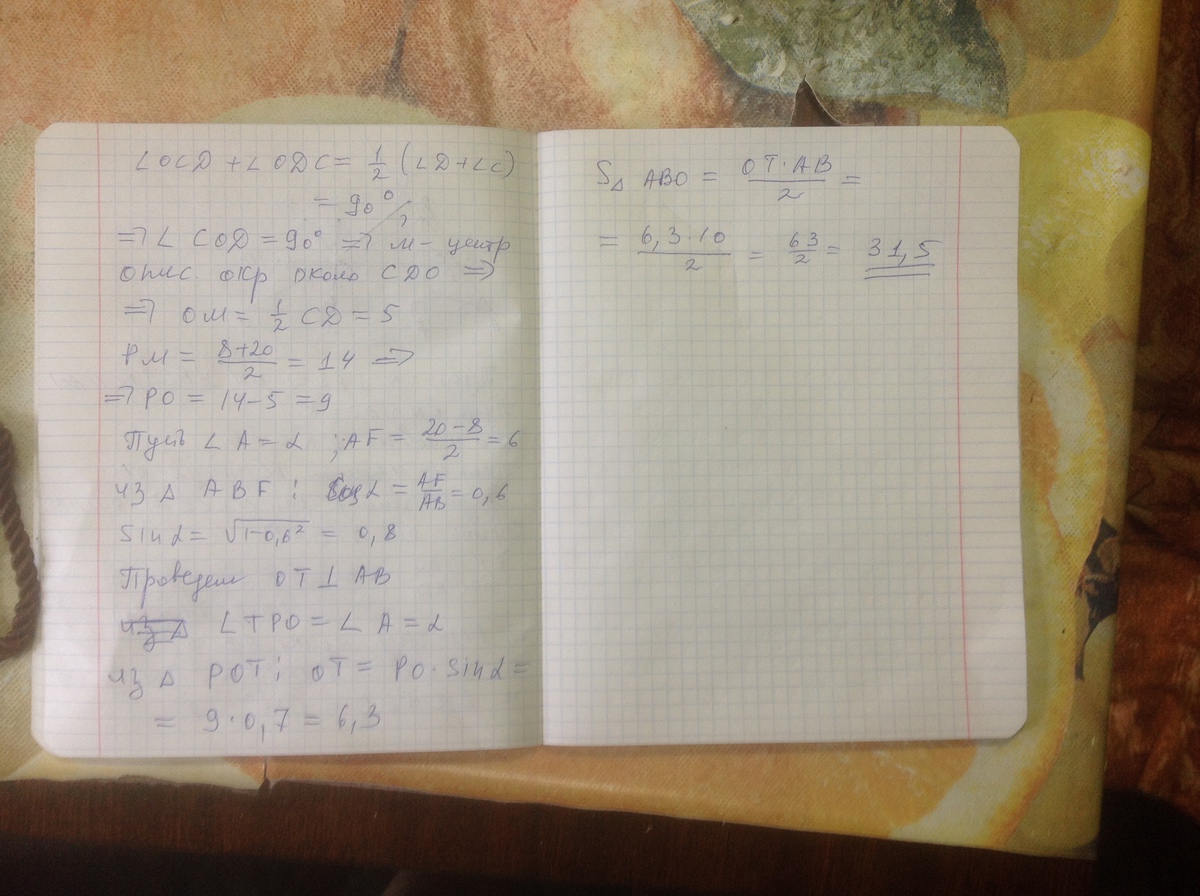 ∠OCD + ∠ODC = 1/2 (∠D + ∠C)
= 90°
⇒ ∠ COD = 90° ⇒ M - центр
опис. окр около CDO ⇒
⇒ OM = 1/2 CD = 5
PM = (8+20)/2 = 14 ⇒
⇒ PO = 14 - 5 = 9
Пусть ∠ A = α ; AF = (20-8)/2 = 6
из △ ABF : Cosα = AF/AB = 0,6
Sinα = √(1-0,6²) = 0,8
Проведем OT ⊥ AB
∠ TPO = ∠ A = α
из △ POT : OT = PO · Sinα =
= 9 · 0,7 = 6,3
S△ ABO = (OT·AB)/2 =
= (6,3·10)/2 = 63/2 = 31,5